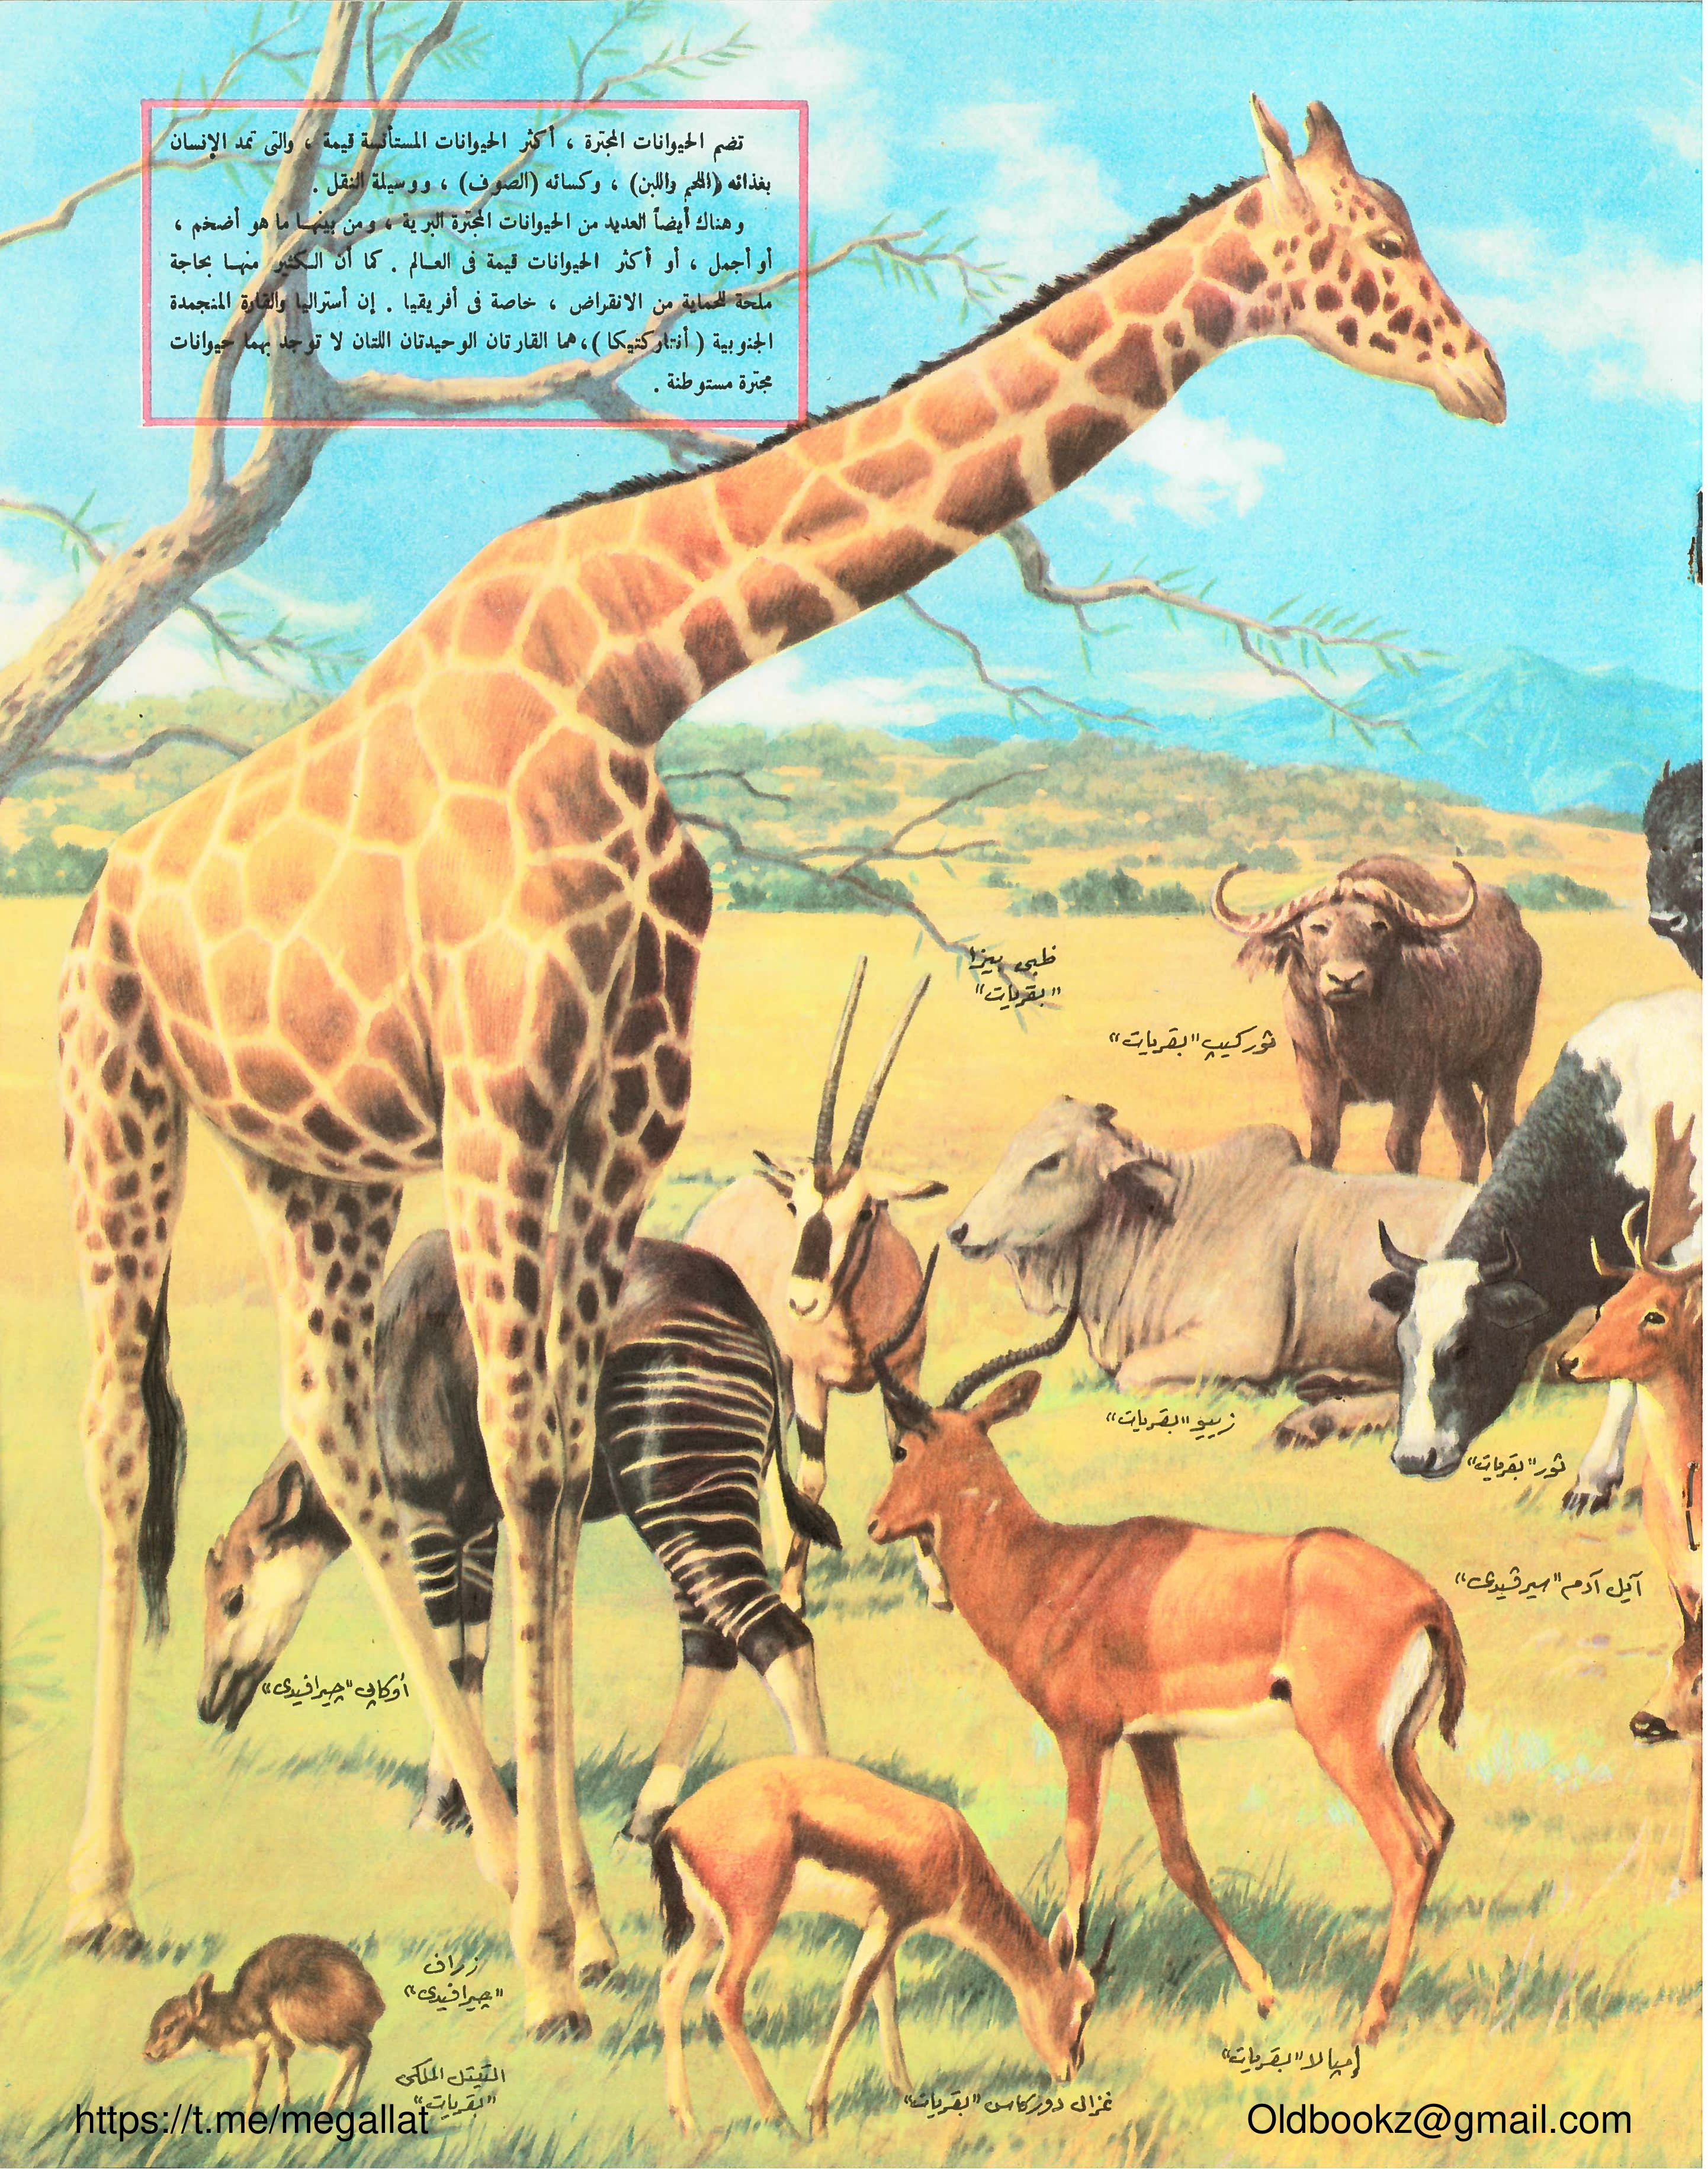 تضم الحيوانات المجترة ، أكثر الحيوانات المستأنسة قيمة ، والتى تمد الإنسان
بغذائه (اللحم واللبن) ، وكسائه (الصوف) ، ووسيلة النقل .
وهناك أيضاً العديد من الحيوانات المجترة البرية ، ومن بينها ما هو أضخم ،
أو أجمل ، أو أكثر الحيوانات قيمة فى العالم . كما أن الكثير منها بحاجة
ملحة للحماية من الانقراض ، خاصة فى أفريقيا . إن أستراليا والقارة المنجمدة
الجنوبية ( أنتاركتيكا ) ، هما القارتان الوحيدتان اللتان لا توجد بهما حيوانات
مجترة مستوطنة .
ظبى بيزا
"بقريات"
ثور كيپ "بقريات"
زيبو "بقريات"
ثور "بقريات"
آيل آدم "سيرڤيدى"
أوكاپى "چيرافيدى"
زراف
"چيرافيدى"
إمپالا "بقريات"
التيتل الملكى
"بقريات"
غزال دوركاس "بقريات"
https://t.me/megallat
Oldbookz@gmail.com